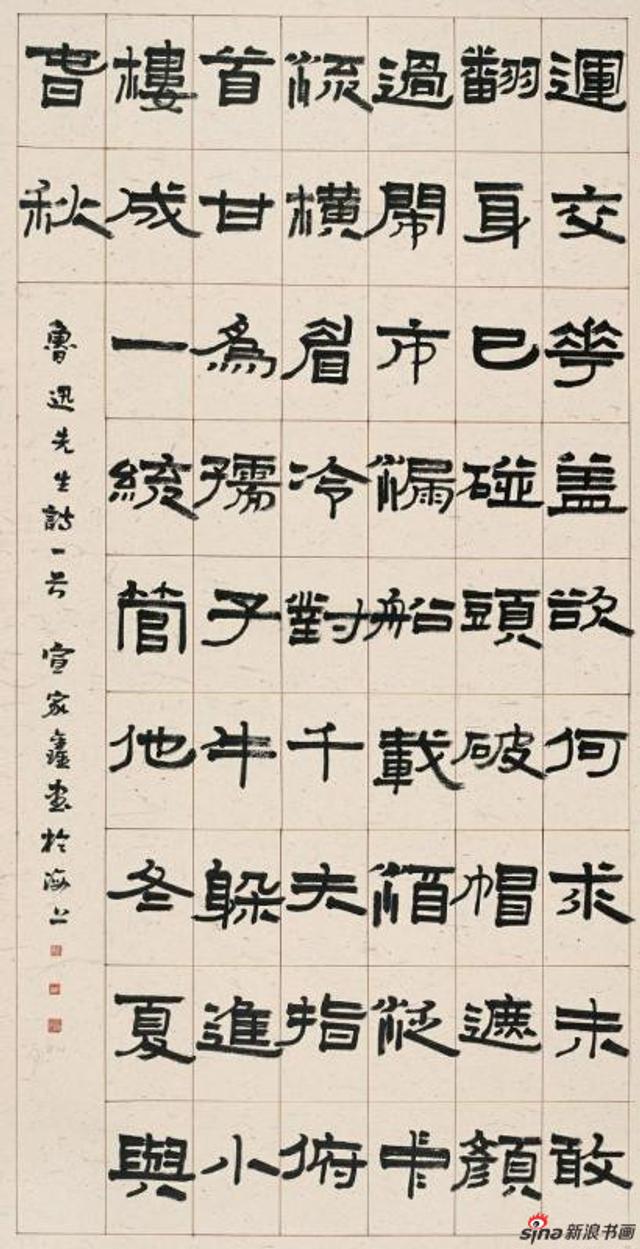 運交華盖欲何求未敢
翻身已碰頭破帽遮顏
過鬧市漏船載酒泛中
流橫眉冷對千夫指俯
首甘為孺子牛躲進小
樓成一統管他冬夏與
春秋
魯迅先生詩一首 宣家鑫書於海上
sina新浪书画